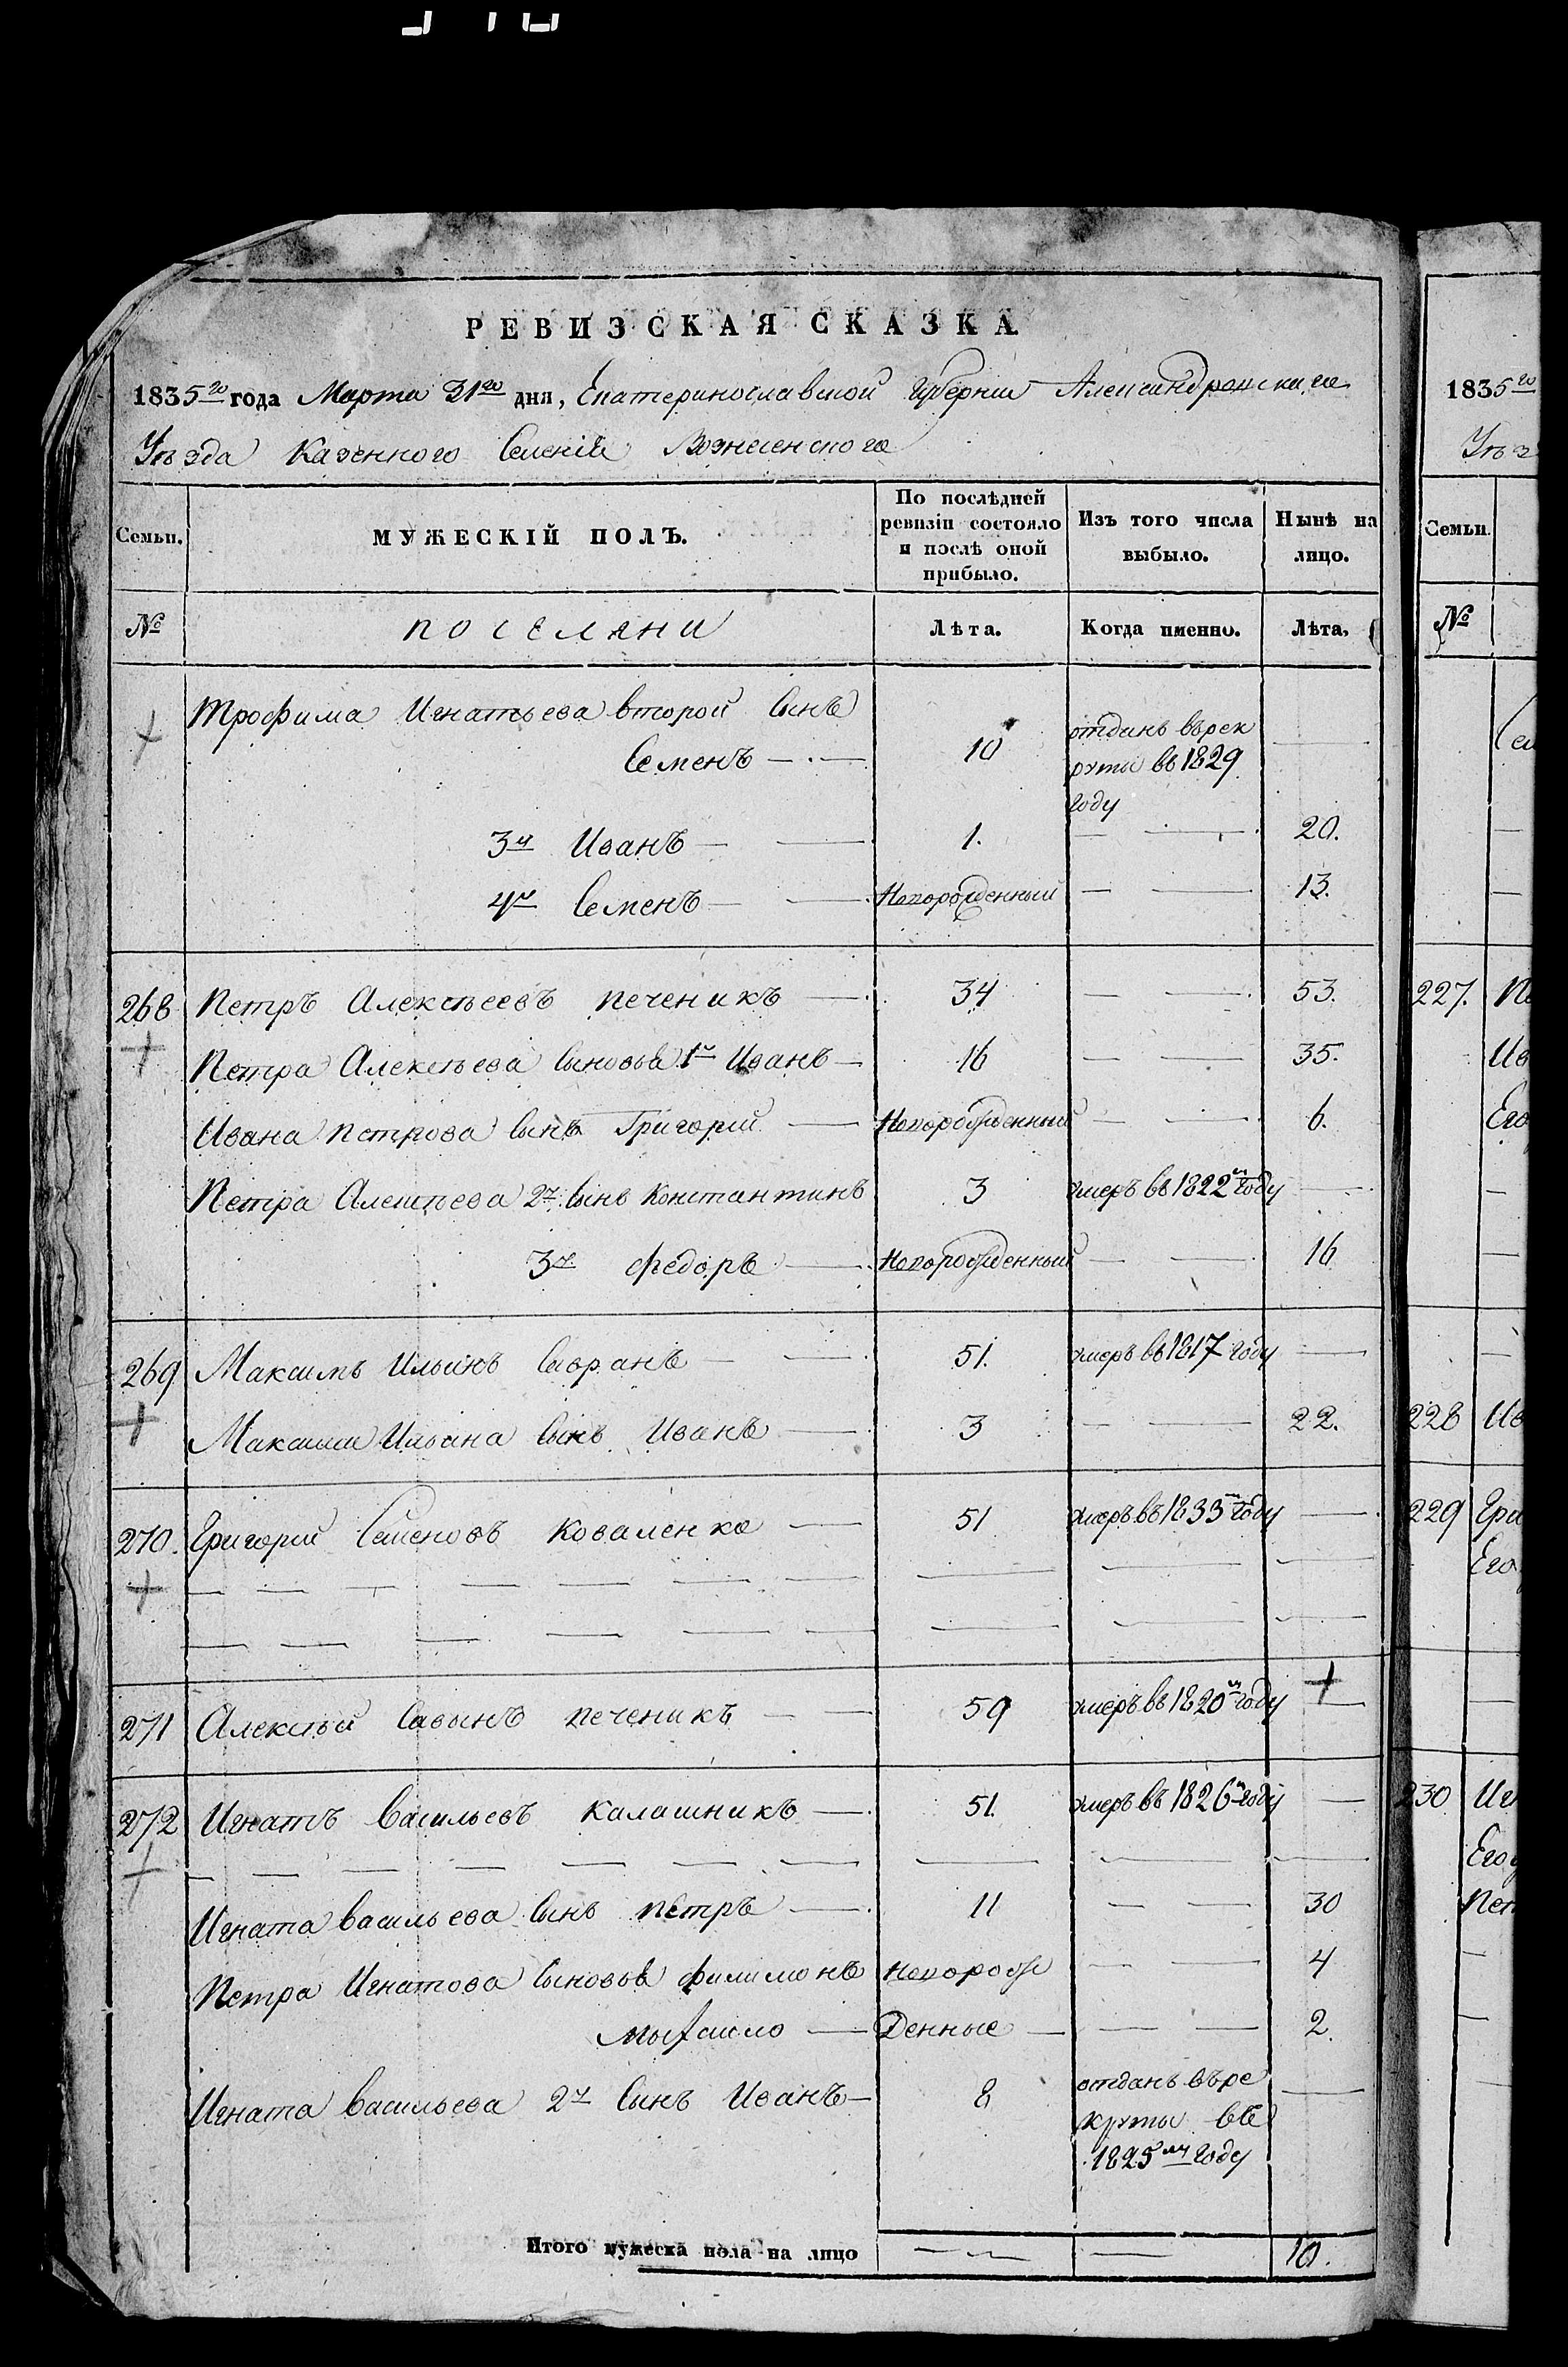 РЕВИЗСКАЯ СКАЗКА.
1835го года Марта 31го дня, Екатеринославской Губернии Александровскаго
Уѣзда Казенного Селенія Вознесенского
Семьи. МУЖЕСКІЙ ПОЛЪ. По послѣдней ревизіи состояло и послѣ оной прибыло. Изъ того числа выбыло. Нынѣ на лицо.
№ поселяни Лѣта. Когда именно. Лѣта.
Трофима Игнатьева второй сынъ
Семенъ — 10 отданъ въ рек
руты въ 1829
году —
3й Иванъ — 1. — 20.
4й Семенъ — Новорожденный — 13.
268 Петръ Алексѣевъ Печеникъ — 34 — 53.
Петра Алексѣева сыновья 1й Иванъ — 16 — 35.
Ивана Петрова сынъ Григорій — Новорожденный — 6.
Петра Алексѣева 2й сынъ Константинъ 3 умеръ въ 1822м году —
3й Федоръ — Новорожденный — 16
269 Максимъ Ильинъ Савранъ — 51. умеръ въ 1817 году —
Максима Ильина сынъ Иванъ — 3 — 22.
270. Григорій Семеновъ Коваленко — 51 умеръ въ 1833м году —
271 Алексѣй Савынъ Печеникъ — 59 умеръ въ 1820м году —
272 Игнатъ Васильевъ Калашникъ — 51. умеръ въ 1826м году —
Игната Васильева сынъ Петръ — 11 — 30
Петра Игнатова сыновья Филимонъ новорож — 4
Мыхайло — Денные — 2.
Игната Васильева 2й сынъ Иванъ — 8 отданъ въ ре
круты въ
1825мъ году —
Итого мужеска пола на лицо — — 10.
1835го
Уѣз
Семьи.
№
Сем
227. Пе
Ив
Его
228 Ив
229 Гри
Его
230 Иг
Его
Пет